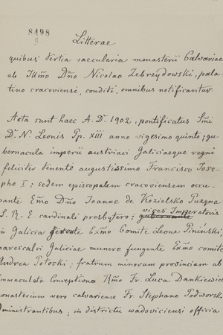 8498
Litterae
quibus tertia saecularia monasterii Calvariae
ab Illmo Dño Nicolao Zebrzydowski, pala-
tino cracoviensi, conditi, omnibus notificantur.
Acta sunt haec A. D. 1902, pontificatus Smi
Dñi N. Leonis Pp. XIII anno vigesimo quinto; gu-
bernacula imperii austriaci Galiciaeque regni
feliciter tenente augustissimo Francisco Jose-
pho I; sedem episcopalem cracoviensem occu-
pante Emo Dño Joanne de Kozielsko Puzyna
S. R. E. cardinali presbytero;
vices Imperatoris
in Galicia gerente Illmo Comite Leone Piniński,
marescalci Galiciae munere fungente Exmo comite
Andrea Potocki; fratrum minorum provinciam ab
Immaculata Conceptione Rndo Fr. Luca Dankiewicz
monasterium vero calvariense Fr. Stephano Podworski
administrantibus, in districtu wadovicensi officii